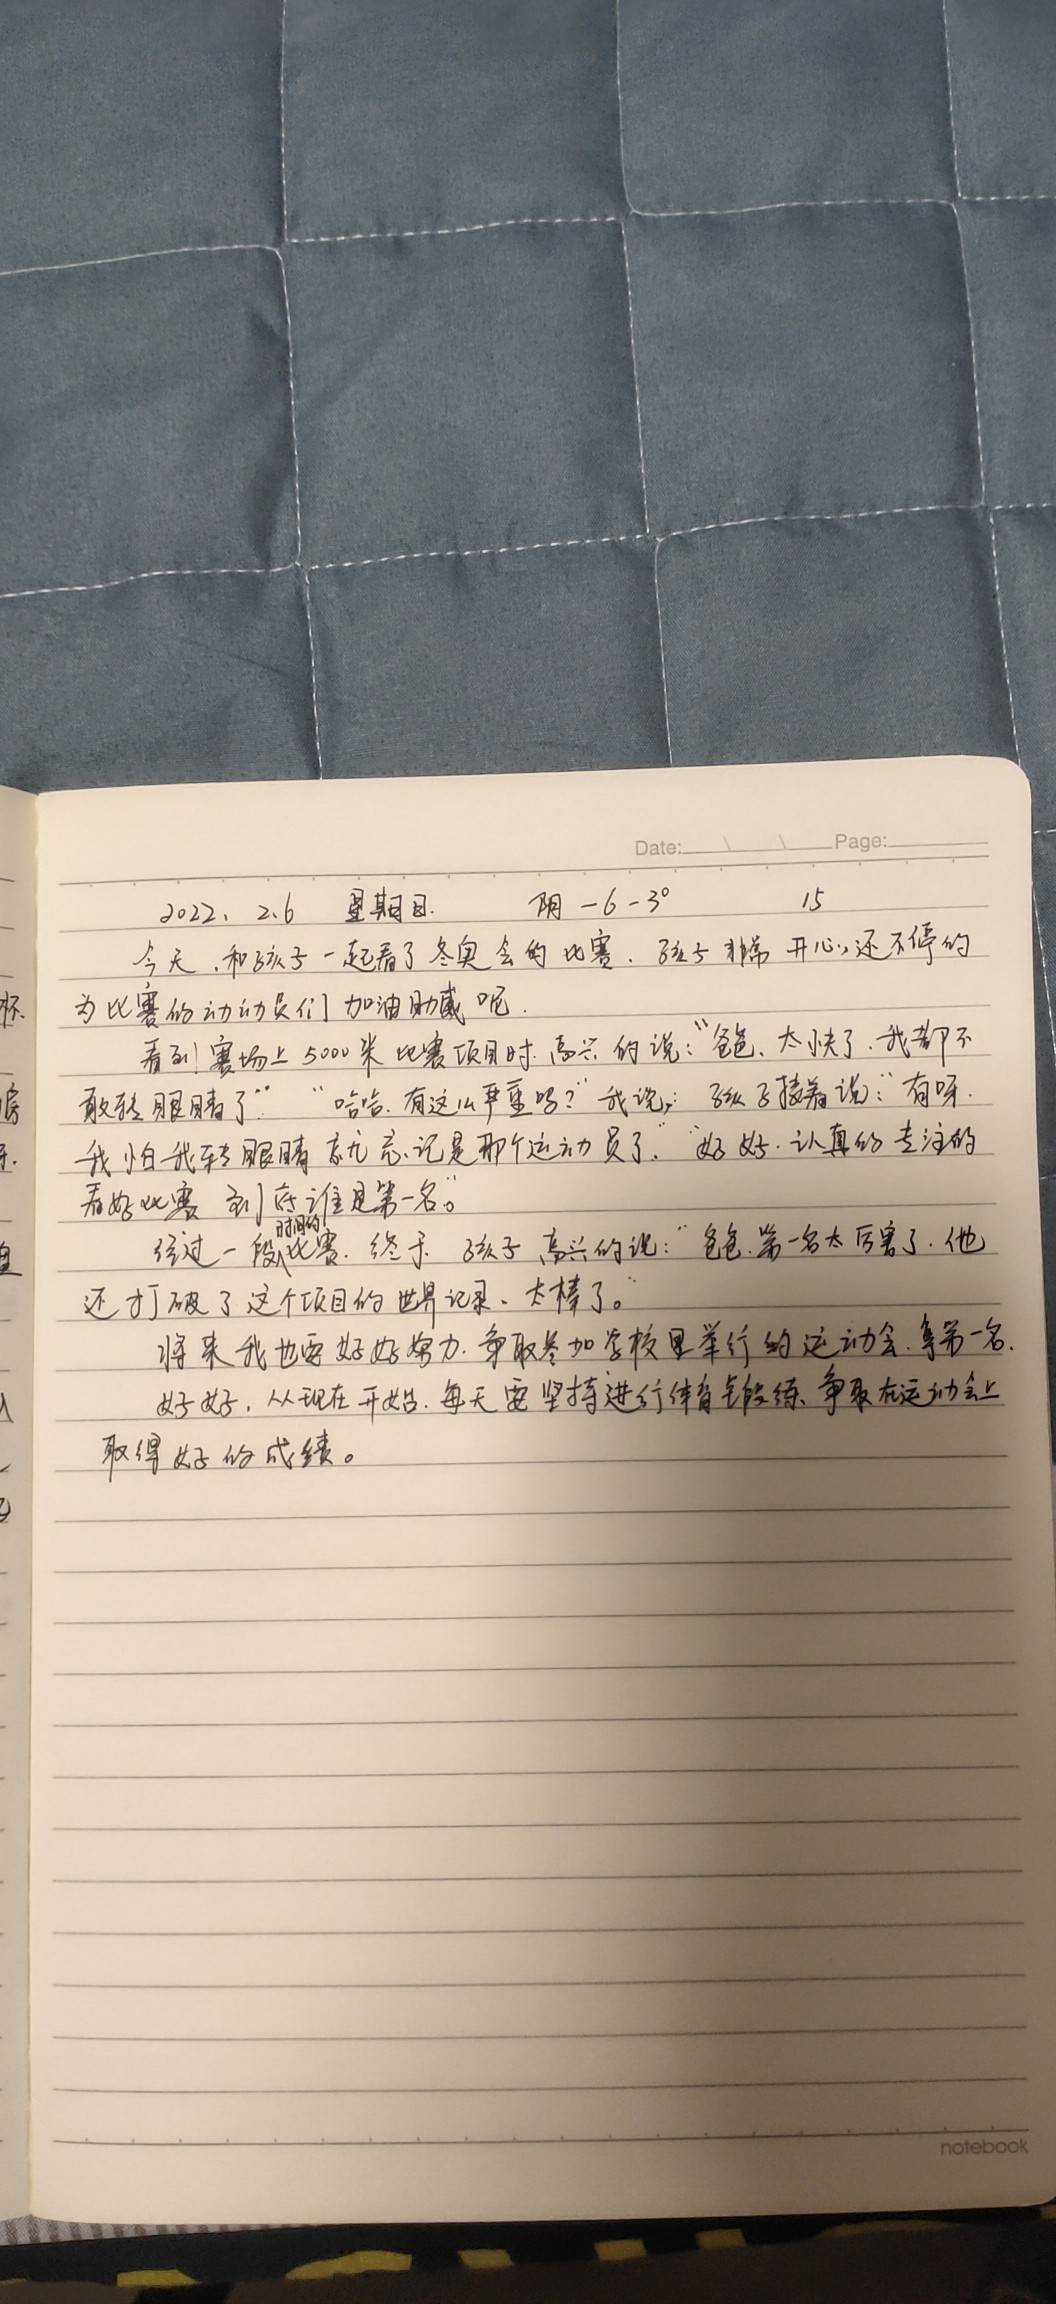 Date: \ \ Page:
2022. 2.6 星期日. 阴 -6-3° 15
今天,和孩子一起看了冬奥会的比赛.孩子非常开心,还不停的
为比赛的动动员们加油助威呢.
看到赛场上5000米比赛项目时.高兴的说:"爸爸、太快了.我都不
敢转眼睛了". "哈哈.有这么严重吗?"我说,:孩子接着说:"有呀.
我怕我转眼睛就忘记是那个运动员了."好好.认真的专注的
看好比赛 到底谁是第一名."
经过一段时间的比赛.终于 孩子高兴的说:"爸爸.第一名太厉害了.他
还打破了这个项目的世界记录、太棒了。"
将来我也要好好努力.争取参加学校里举行的运动会.争第一名.
好好,从现在开始.每天要坚持进行体育锻练、争取在运动会上
取得好的成绩。
notebook